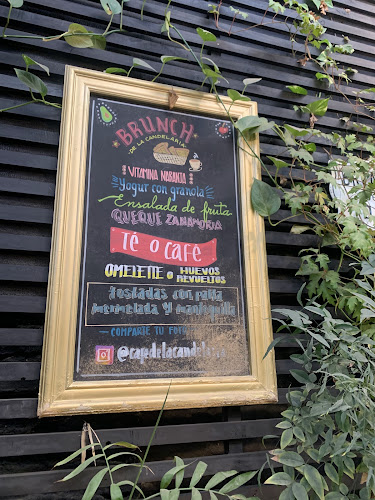 BRUNCH
DE LA CANDELARIA
VITAMINA NARANJA
Yogur con granola
Ensalada de fruta
QUEQUE ZANAHORIA
TÉ O CAFÉ
OMELETTE O HUEVOS REVUELTOS
Tostadas con palta
Mermelada y mantequilla
COMPARTE TU